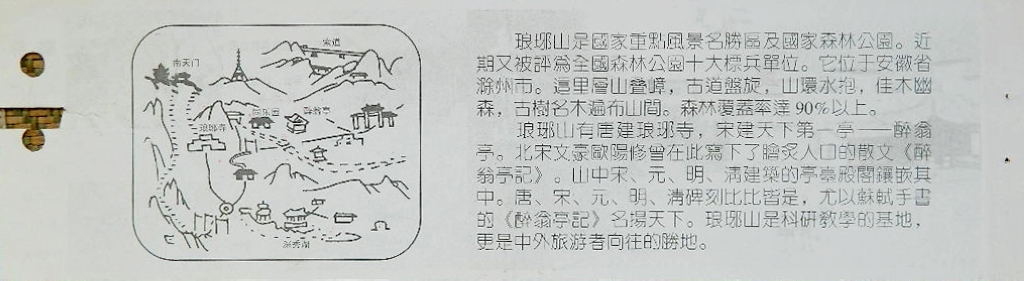 索道
南天门
醉翁亭
琅琊寺
深秀湖
琅琊山是國家重點風景名勝區及國家森林公園。近
期又被評爲全國森林公園十大標兵單位。它位于安徽省
滁州市。這里層山叠嶂，古道盤旋，山環水抱，佳木幽
森，古樹名木遍布山間。森林覆蓋率達 90%以上。
琅琊山有唐建琅琊寺，宋建天下第一亭——醉翁
亭。北宋文豪歐陽修曾在此寫下了膾炙人口的散文《醉
翁亭記》。山中宋、元、明、清建築的亭臺殿閣鑲嵌其
中。唐、宋、元、明、清碑刻比比皆是，尤以蘇軾手書
的《醉翁亭記》名揚天下。琅琊山是科研教學的基地，
更是中外旅游者向往的勝地。